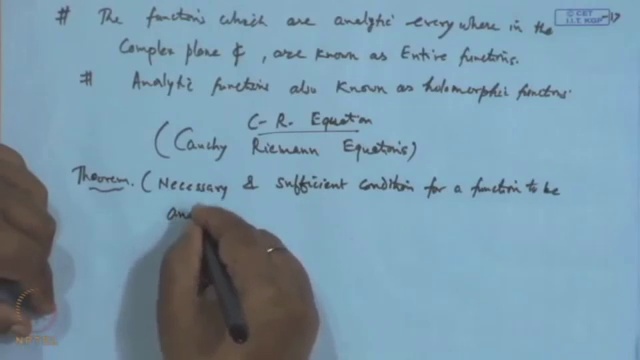 # The functions which are analytic everywhere in the
Complex plane ₵, are known as Entire functions.
# Analytic functions also known as holomorphic functions.
C-R. Equation
(Cauchy Riemann Equations)
Theorem. (Necessary & sufficient condition for a function to be
ana
© CET
I.I.T. KGP
NPTEL